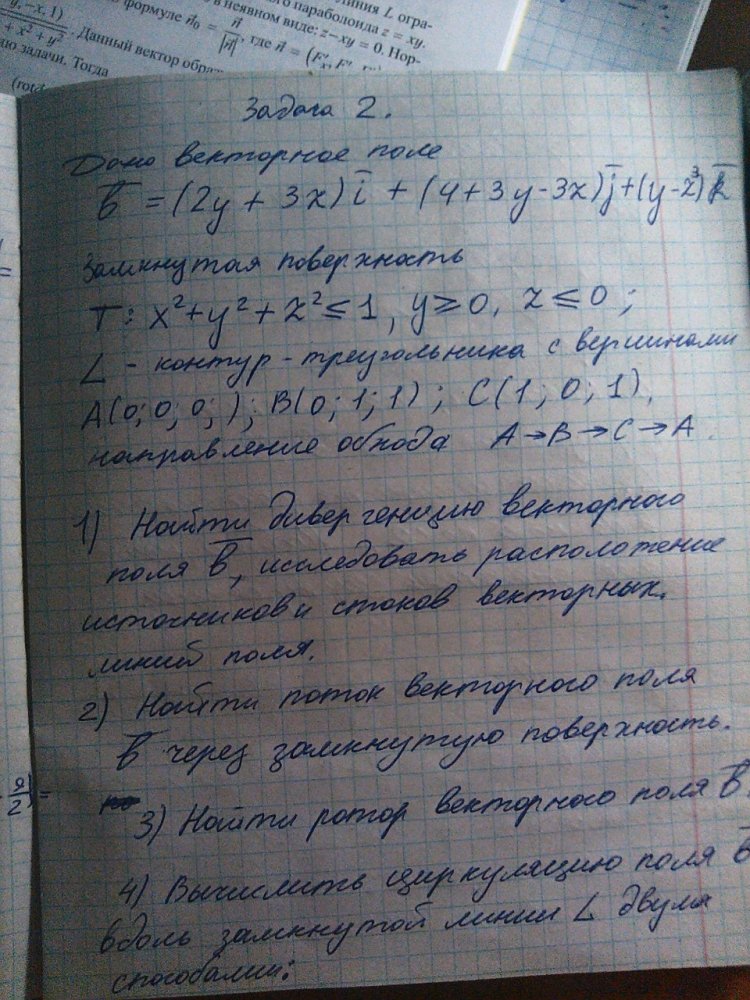 линия L огра-
го параболоида z = xy.
в неявном виде: z – xy = 0. Нор-
формуле n⃗₀ = n⃗/|n⃗|, где n⃗ =
y, –x, 1)
+ x² + y²
. Данный вектор
ию задачи. Тогда
(rot
Задача 2.
Дано векторное поле
b̅ = (2y + 3x) i̅ + (4 + 3y - 3x) j̅ + (y - z³) k̅
Замкнутая поверхность
T: x² + y² + z² ≤ 1, y ≥ 0, z ≤ 0 ;
L - контур - треугольника с вершинами
A(0; 0; 0; ) ; B(0; 1; 1) ; C(1; 0; 1),
направление обхода A → B → C → A.
1) Найти дивергенцию векторного
поля b̅, исследовать расположение
источников и стоков векторных.
линий поля.
2) Найти поток векторного поля
b̅ через замкнутую поверхность.
3) Найти ротор векторного поля b̅.
4) Вычислить циркуляцию поля b̅
вдоль замкнутой линии L двумя
способами: